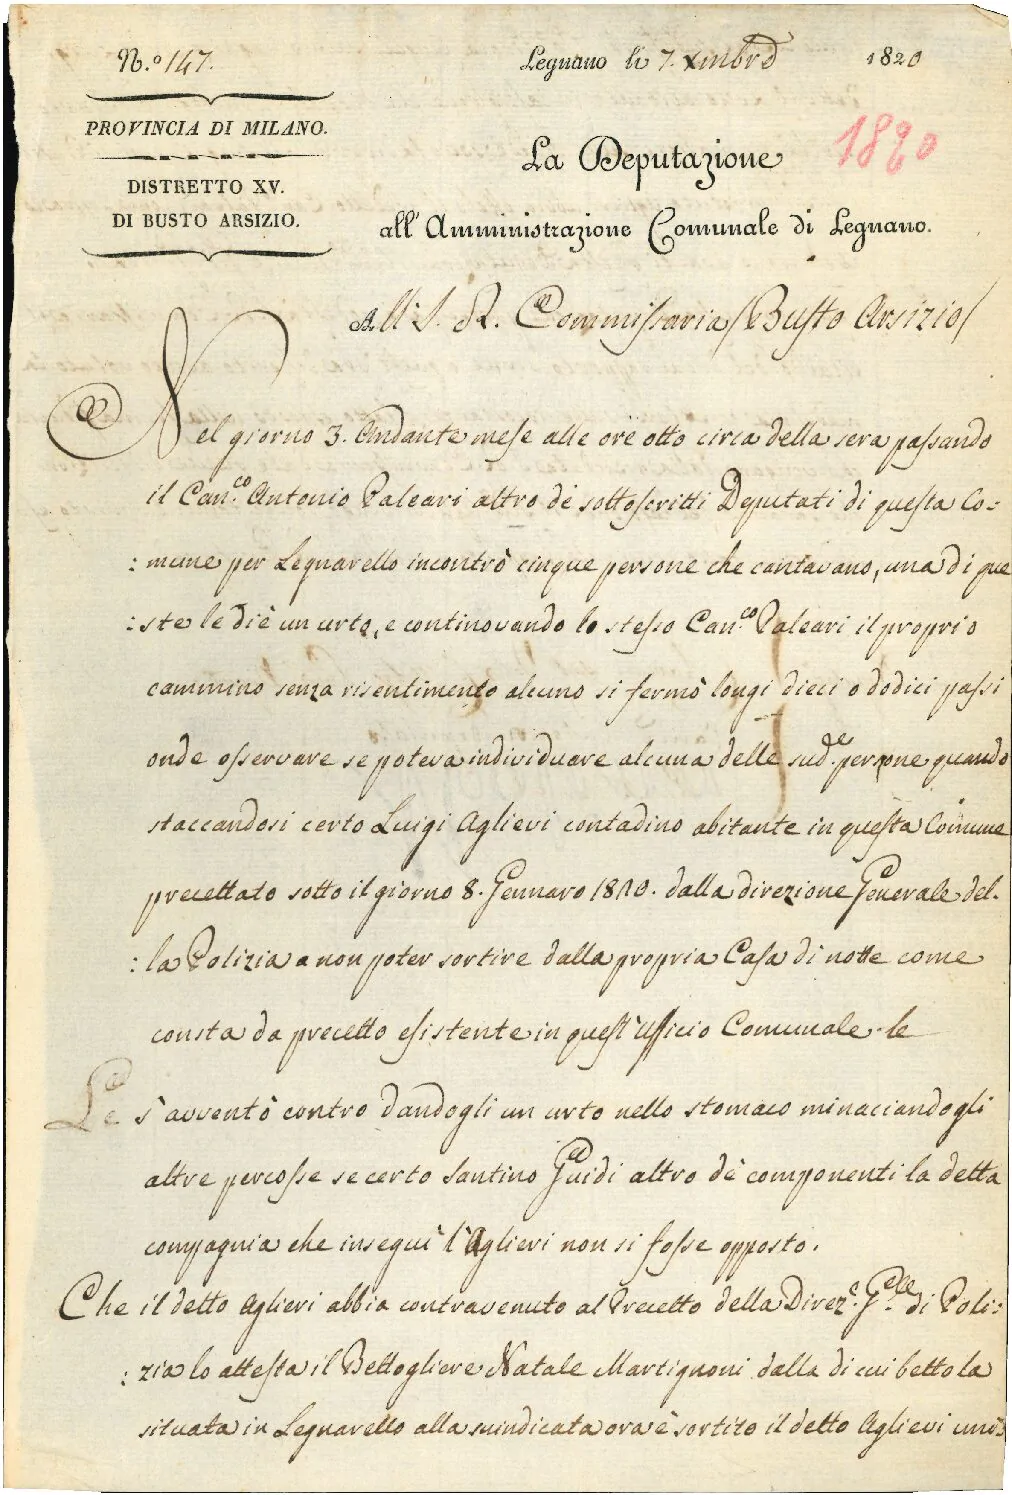 N.o 147.
Legnano li 7. Xmbre 1820
PROVINCIA DI MILANO.
1820
DISTRETTO XV.
DI BUSTO ARSIZIO.
La Deputazione
all' Amministrazione Comunale di Legnano.
All' I. R. Commissaria /Busto Arsizio/
Nel giorno 3. Andante mese alle ore otto circa della sera passando
il Can.co Antonio Paleari altro de sottoscritti Deputati di questa Co=
:mune per Legnarello incontrò cinque persone che cantavano, una di que
:ste le diè un urto, e continovando lo stesso Can.co Paleari il proprio
cammino senza risentimento alcuno si fermò longi dieci o dodici passi
onde osservare se poteva individuare alcuna delle sud.de persone quando
staccandosi certo Luigi Aglievi contadino abitante in questa Comune
precettato sotto il giorno 8. Gennaro 1820. dalla direzione Generale del.
:la Polizia a non poter sortire dalla propria Casa di notte come
consta da precetto esistente in quest' Ufficio Comunale. le
Le s'avventò contro dandogli un urto nello stomaco minaciandogli
altre percosse se certo Santino Guidi altro dè componenti la detta
compagnia che inseguì l'Aglievi non si fosse opposto.
Che il detto Aglievi abbia contravenuto al Precetto della Direz.e G.ele di Poli:
:zia lo attesta il Bettogliere Natale Martignoni dalla di cui bettola
situata in Legnarello alla suindicata ora è sortito il detto Aglievi